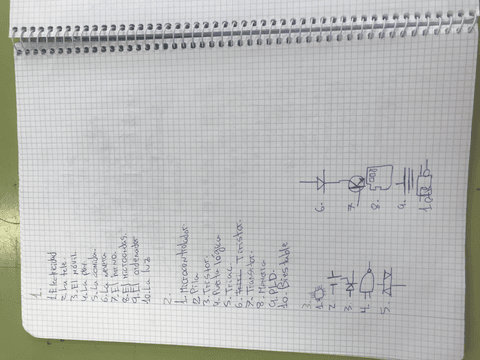 1.
1. Electricidad
2. La tele.
3. El móvil
4. La play.
5. La comida.
6. La nevera
7. El horno.
8. El microondas.
9. El ordenador
10. La luz
2.
1. Microcontrolador.
2. Pila
3. Tiristor.
4. Puerta lógica
5. Triac
6. Tiristor.
7. Transistor
8. Memoria
9. P.L.D.
10. Biestable
3.
1.
2.
3.
4.
5.
6.
7.
8.
9.